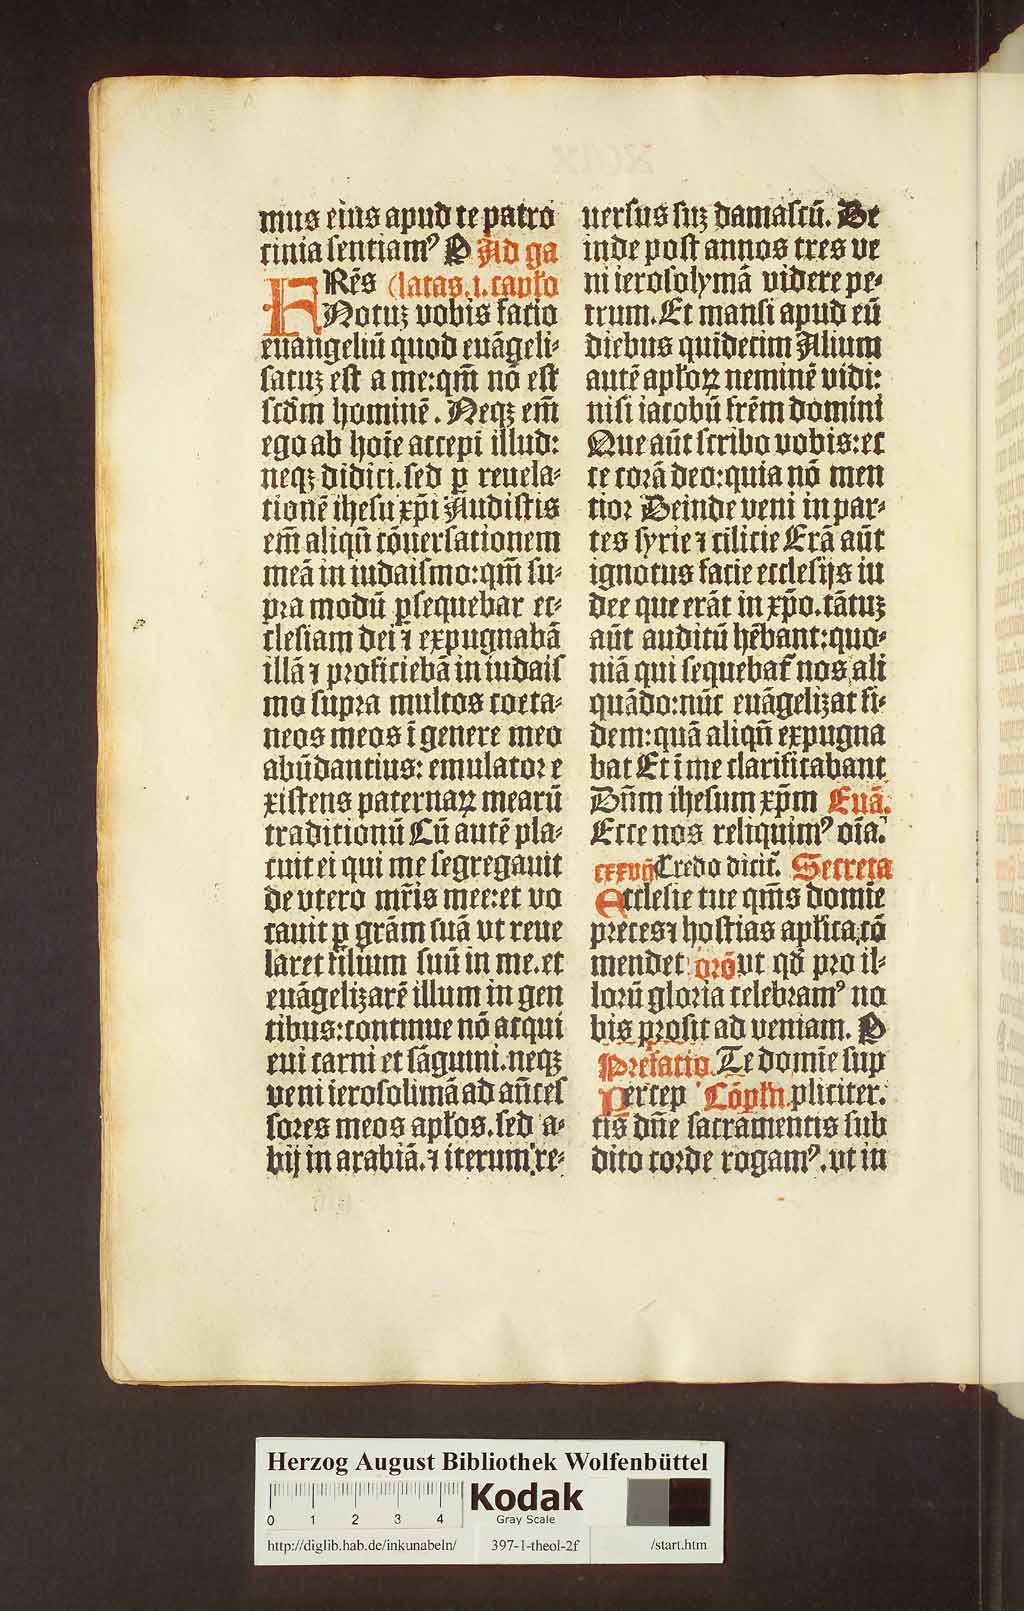 mus eius apud te patro
cinia sentiamꝰ P Ad ga
FRēs (latas .i. capło
Notuꝫ vobis facio
euangeliū quod euāgeli-
satuꝫ est a me: qm̄ nō est
scd̄m hominē. Neqꝫ em̄
ego ab hoīe accepi illud:
neqꝫ didici. sed ꝑ reuela-
tionē ihesu xp̄i Audistis
em̄ aliqn̄ cōuersationem
meā in iudaismo: qm̄ su-
pra modū ꝑsequebar ec-
clesiam dei ⁊ expugnabā
illā ⁊ proficiebā in iudais
mo supra multos coeta-
neos meos ī genere meo
abūdantius: emulator e
xistens paternaꝝ mearū
traditionū Cū autē pla-
cuit ei qui me segregauit
de vtero mr̄is mee: et vo
cauit ꝑ grām suā vt reue
laret filium suū in me. et
euāgelizarē illum in gen
tibus: continue nō acqui
eui carni et sāguini. neqꝫ
veni ierosolimā ad an̄ces
sores meos apłos. sed a-
bij in arabiā. ⁊ iterum re-
uersus suꝫ damascū. De
inde post annos tres ve
ni ierosolymā videre pe-
trum. Et mansi apud eū
diebus quidecim Alium
autē apłoꝝ neminē vidi:
nisi iacobū frēm domini
Que aūt scribo vobis: ec
ce corā deo: quia nō men
tior Deinde veni in par-
tes syrie ⁊ cilicie Erā aūt
ignotus facie ecclesijs iu
dee que erāt in xp̄o. tātuꝫ
aūt auditū hēbant: quo-
niā qui sequebat̄ nos ali
quādo: nūc euāgelizat fi-
dem: quā aliqn̄ expugna
bat Et ī me clarificabant
Dn̄m ihesum xp̄m Euā.
Ecce nos reliquimꝰ oīa.
cxxvij Credo dicit̄. Secreta
Ecclesie tue qm̄s domīe
preces ⁊ hostias aplica cō
mendet orō vt qd̄ pro il-
lorū gloria celebramꝰ no
bis prosit ad veniam. P
Prefatio. Te domīe sup
Percep Cōpłn. pliciter.
tis dn̄e sacramentis sub
dito corde rogamꝰ. vt in
Herzog August Bibliothek Wolfenbüttel
0 1 2 3 4
Kodak
Gray Scale
http://diglib.hab.de/inkunabeln/ 397-1-theol-2f /start.htm